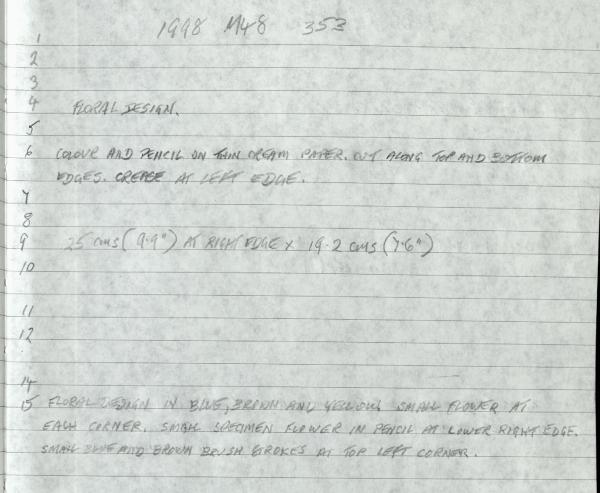 1998 M48 353
1
2
3
4 FLORAL DESIGN.
5
6 COLOUR AND PENCIL ON THIN CREAM PAPER. CUT ALONG TOP AND BOTTOM
EDGES. CREASE AT LEFT EDGE.
7
8
9 25 cms (9.9") AT RIGHT EDGE x 19.2 cms (7.6")
10
11
12
14
15 FLORAL DESIGN IN BLUE, BROWN AND YELLOW. SMALL FLOWER AT
EACH CORNER. SMALL SPECIMEN FLOWER IN PENCIL AT LOWER RIGHT EDGE.
SMALL BLUE AND BROWN BRUSH STROKES AT TOP LEFT CORNER.